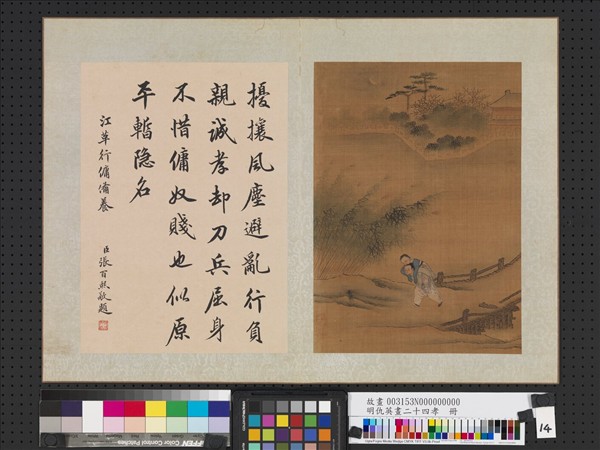 擾攘風塵避亂行負
親誠孝却刀兵屈身
不惜傭奴賤也似原
平暫隐名
江革行傭備養
臣張百熙敬題
FFEN
Color Control Patches
故畫 003153N000000000
明仇英畫二十四孝 冊
14